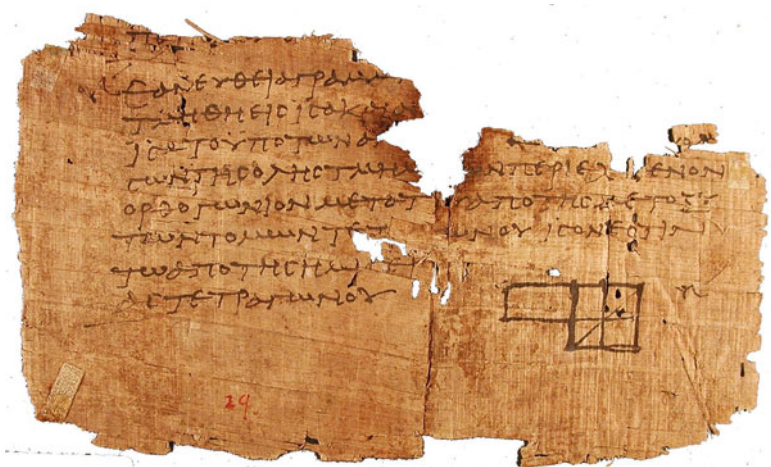 ΕΑΝΕΥΘΕΙΑΓΡΑΜΜ
ΤΜΗΘΗΕΙϹΙϹΑΚΑΙΑ
ΙϹΑΤΟΥΠΟΤΩΝΑ
ϹΩΝΤΗϹΟΛΗϹΤΜΗΜ ΩΝΠΕΡΙΕΧ ΜΕΝΟΝ
ΟΡΘΟΓΩΝΙΟΝΜΕΤΑΤΟΥΑΠΟΤΗϹΜΕΤΟΞΥ
ΤΩΝΤΟΜΩΝΤΕΤ ΩΝΟΥΙϹΟΝΕϹΤΙΝ
ΤΩΑΠΟΤΗϹΗΜΙϹΕΙ
ΑϹΤΕΤΡΑΓΩΝΟΥ
29